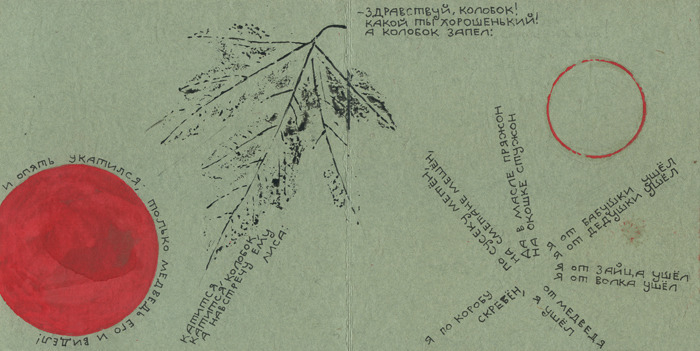 И ОПЯТЬ УКАТИЛСЯ; ТОЛЬКО МЕДВЕДЬ ЕГО И ВИДЕЛ!
КАТИТСЯ,
КАТИТСЯ КОЛОБОК
А НАВСТРЕЧУ ЕМУ
ЛИСА:
–ЗДРАВСТВУЙ, КОЛОБОК!
КАКОЙ ТЫ ХОРОШЕНЬКИЙ!
А КОЛОБОК ЗАПЕЛ:
Я ПО КОРОБУ
СКРЕБЁН,
ПО СУСЕКУ МЕТЁН,
НА СМЕТАНЕ МЕШЕН
ДА В МАСЛЕ ПРЯЖОН
НА ОКОШКЕ СТУЖОН
Я ОТ БАБУШКИ УШЁЛ
Я ОТ ДЕДУШКИ УШЁЛ
Я ОТ ЗАЙЦА УШЁЛ
Я ОТ ВОЛКА УШЁЛ
ОТ МЕДВЕДЯ
Я УШЁЛ